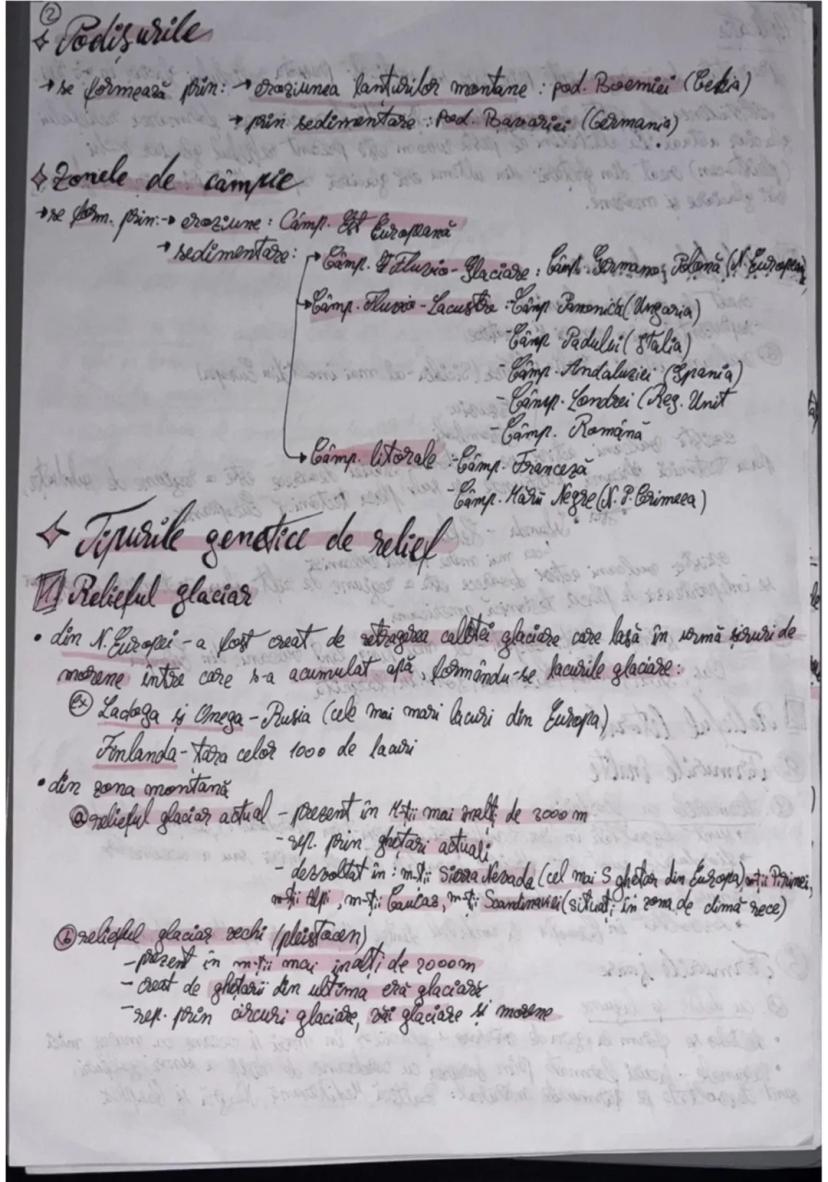 2
Podișurile
→ se formează prin: → eroziunea lanțurilor montane : pod. Boemiei (Cehia)
→ prin sedimentare : Pod. Bavariei (Germania)
Zonele de câmpie
→ se form. prin: → eroziune : Câmp. Est Europeană
→ sedimentare:
→ Câmp. Fluvio-Glaciare : Câmp. Germano, Polonă (N. Europei)
→ Câmp. Fluvio-Lacustre : -Câmp. Panonică (Ungaria)
-Câmp. Padului (Italia)
-Câmp. Andaluziei (Spania)
-Câmp. Londrei (Reg. Unit
-Câmp. Română
→ Câmp. litorale -Câmp. Franceză
-Câmp. Mării Negre (N. P. Crimeea)
Tipurile genetice de relief
1 Relieful glaciar
• din N. Europei - a fost creat de retragerea calotei glaciare care lasă în urmă șiruri de
morene între care s-a acumulat apă, formându-se lacurile glaciare:
ex Ladoga și Onega - Rusia (cele mai mari lacuri din Europa)
Finlanda - țara celor 1000 de lacuri
• din zona montană
a relieful glaciar actual - prezent în M-ții mai înalți de 3000 m
- rep. prin ghețari actuali
- dezvoltat în : m-ții Sierra Nevada (cel mai S ghețar din Europa) m-ții Pirinei,
m-ții Alpi, m-ții Caucaz, m-ții Scandinaviei (situați în zona de climă rece)
b relieful glaciar vechi (pleistocen)
- prezent în m-ții mai înalți de 2000 m
- creat de ghețarii din ultima eră glaciară
- rep. prin circuri glaciare, văi glaciare și morene